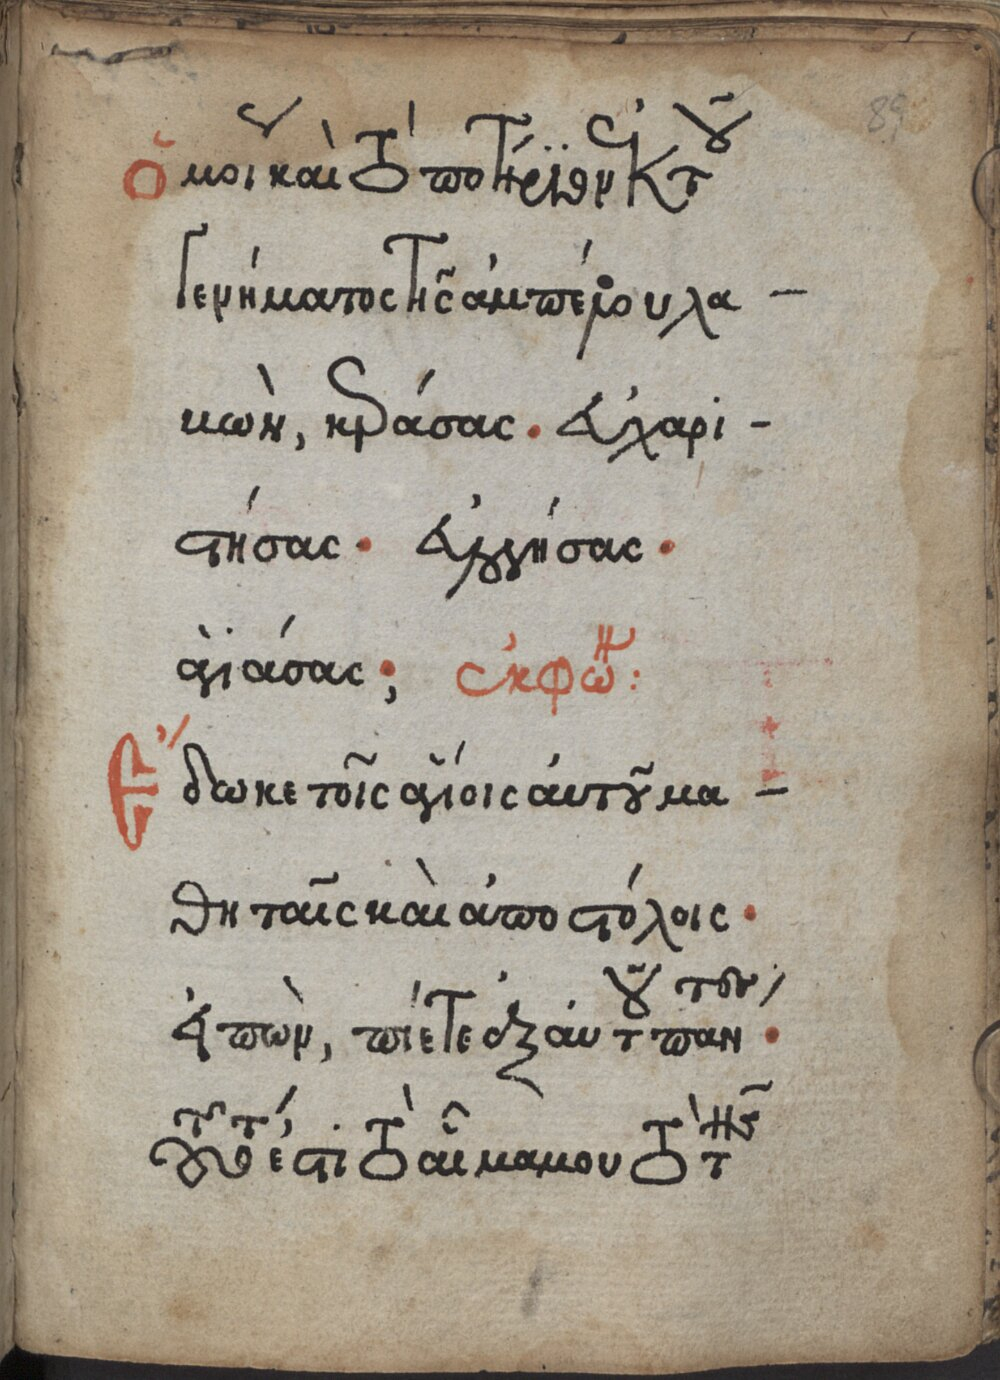 89
Ὁμοί καὶ τὸ ποτήριον ἐκ τοῦ
γενήματος τῆς ἀμπέλου λα-
βὼν, κεράσας. εὐχαρι-
στήσας. εὐλογήσας.
ἁγιάσας; ἐκφών:
Ἔδωκε τοῖς ἁγίοις αὐτοῦ μα-
θηταῖς καὶ ἀποστόλοις.
εἰπὼν, πίετε ἐξ αὐτοῦ πάντες.
τοῦτό ἐστι τὸ αἷμα μου τὸ τῆς